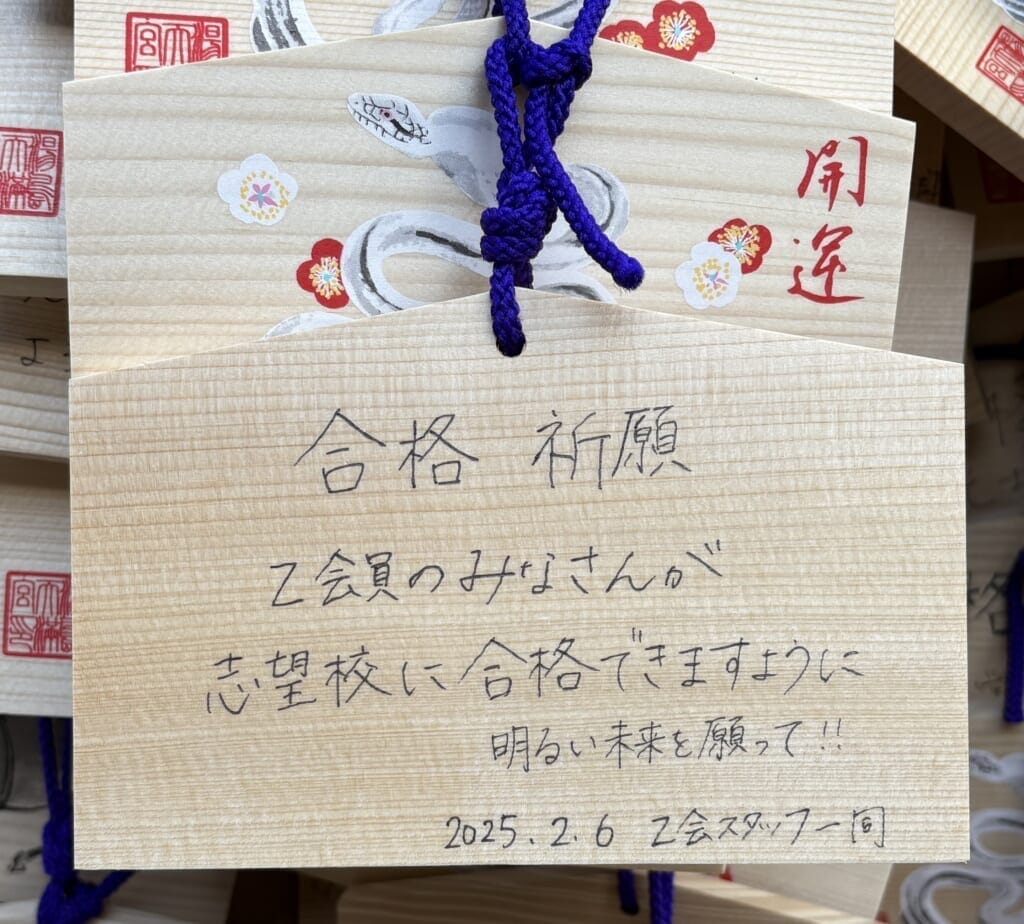 開運
合格 祈願
Z会員のみなさんが
志望校に合格できますように
明るい未来を願って!!
2025.2.6 Z会スタッフ一同